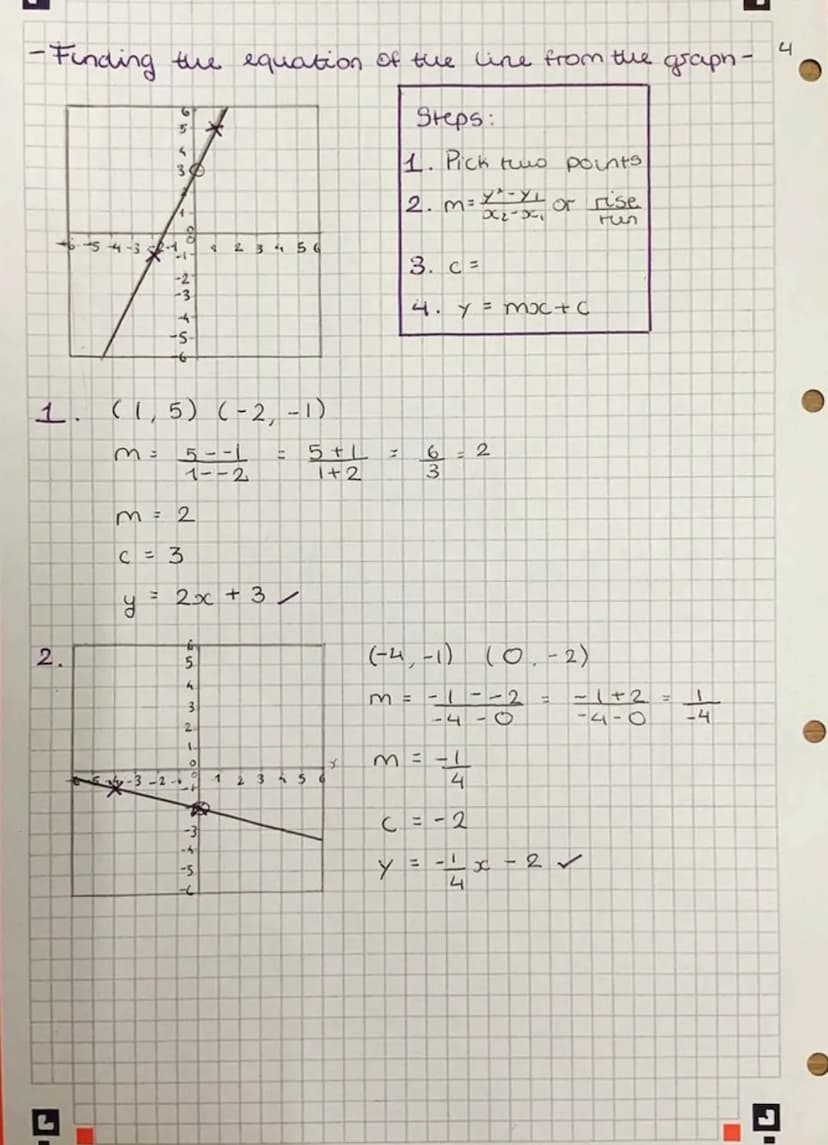 - Finding the equation of the line from the graph -
4
6
5
4
3
2
1
0
-6 -5 -4 -3 -2 -1 0 1 2 3 4 5 6
-1
-2
-3
-4
-5
-6
Steps:
1. Pick two points
2. m = y² - y₁ / x₂ - x₁ or rise / run
3. c =
4. y = mx + c
1. (1, 5) (-2, -1)
m = 5 - -1 / 1 - -2 = 5 + 1 / 1 + 2 = 6 / 3 = 2
m = 2
c = 3
y = 2x + 3 ✓
2.
6
5
4
3
2
1
0
-6 -5 -4 -3 -2 -1 0 1 2 3 4 5 6 x
-1
-3
-4
-5
-6
(-4, -1) (0, -2)
m = -1 - -2 / -4 - 0 = -1 + 2 / -4 - 0 = 1 / -4
m = -1 / 4
c = -2
y = -1/4 x - 2 ✓